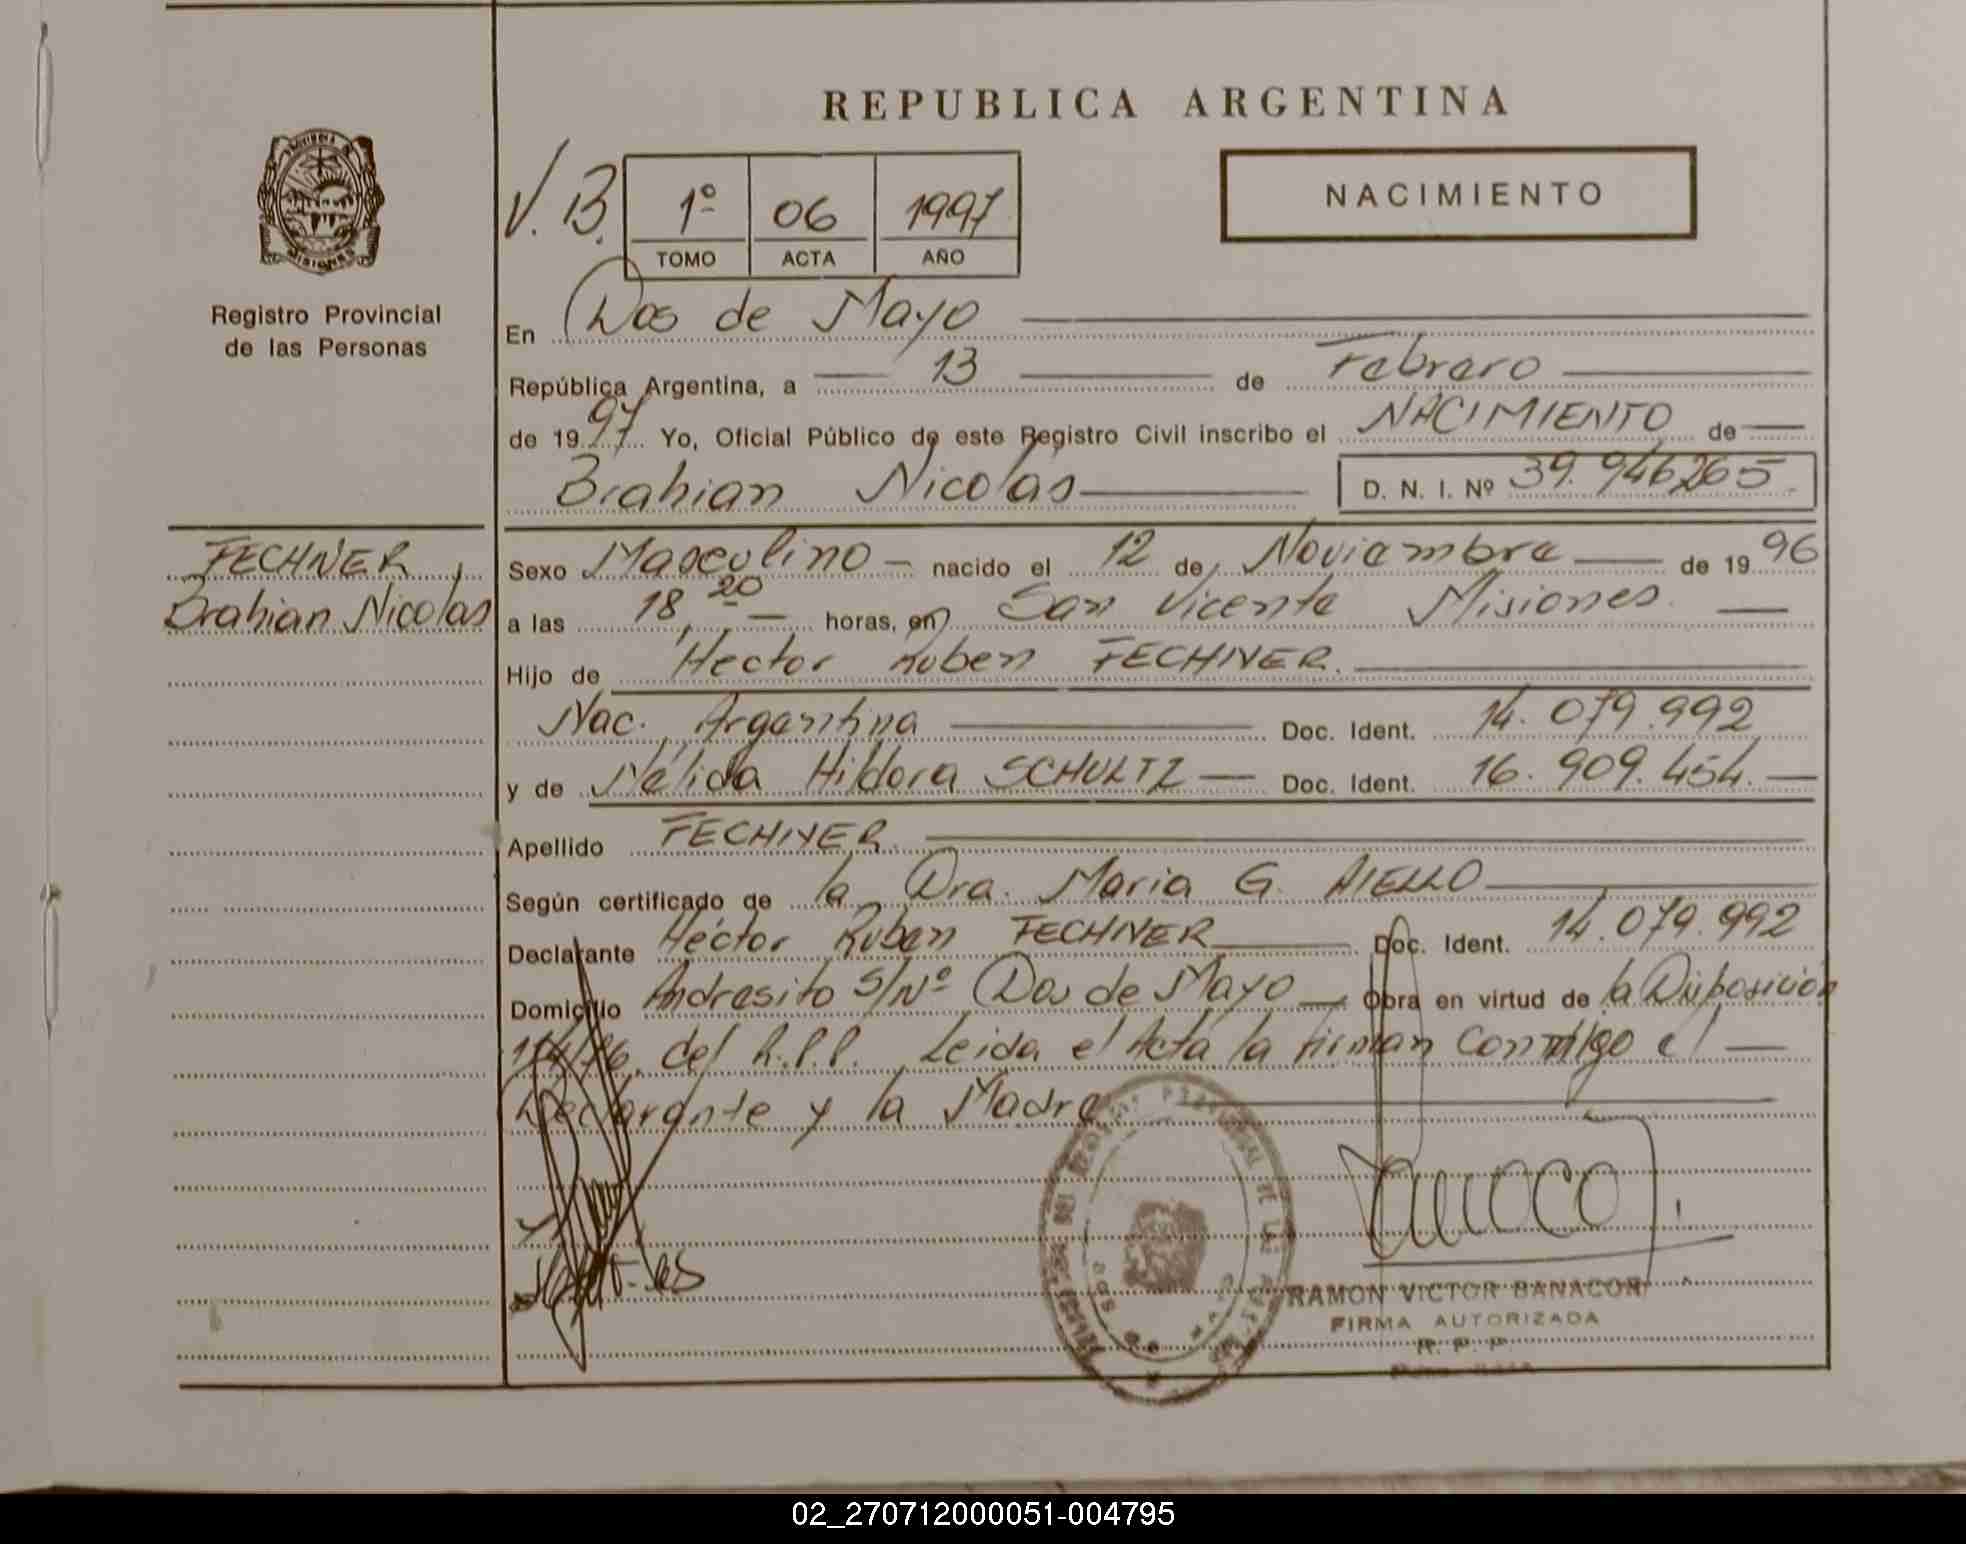 REPUBLICA ARGENTINA
V. B. 1º 06 1997
TOMO ACTA AÑO
NACIMIENTO
Registro Provincial
de las Personas
En Dos de Mayo
República Argentina, a 13 de Febrero
de 1997 Yo, Oficial Público de este Registro Civil inscribo el NACIMIENTO de
Brahian Nicolás D. N. I. Nº 39.946265.
FECHNER,
Brahian Nicolas
Sexo Masculino nacido el 12 de Noviembre de 1996
a las 18,20 horas, en San Vicente Misiones.
Hijo de Hector Ruben FECHNER.
Nac. Argentina Doc. Ident. 14.079.992
y de Nélida Hildora SCHULTZ Doc. Ident. 16.909.454.
Apellido FECHNER.
Según certificado de la Dra. Maria G. AIELLO
Declarante Héctor Ruben FECHNER Doc. Ident. 14.079.992
Domicilio Andresito S/Nº Dos de Mayo Obra en virtud de la Disposición
del R.P.P. Leida el Acta la firman conmigo el
Declarante y la Madre
RAMON VICTOR BANACOR
FIRMA AUTORIZADA
R. P. P.
02_270712000051-004795